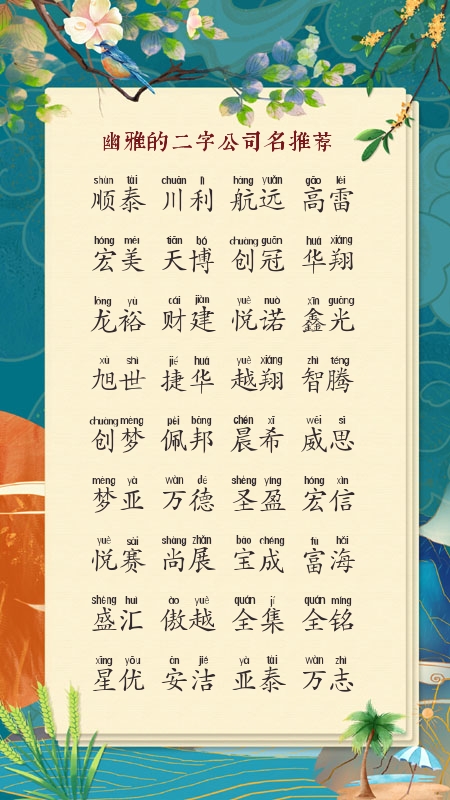 幽雅的二字公司名推荐
shùn tài chuān lì háng yuǎn gāo léi
顺泰 川利 航远 高雷
hóng měi tiān bó chuàng guān huá xiáng
宏美 天博 创冠 华翔
lóng yù cái jiàn yuè nuò xīn guāng
龙裕 财建 悦诺 鑫光
xù shì jié huá yuè xiáng zhì téng
旭世 捷华 越翔 智腾
chuàng mèng pèi bāng chén xī wēi sī
创梦 佩邦 晨希 威思
mèng yà wàn dé shèng yíng hóng xìn
梦亚 万德 圣盈 宏信
yuè sài shàng zhǎn bǎo chéng fù hǎi
悦赛 尚展 宝成 富海
shèng huì ào yuè quán jí quán míng
盛汇 傲越 全集 全铭
xīng yōu ān jié yà tài wàn zhì
星优 安洁 亚泰 万志